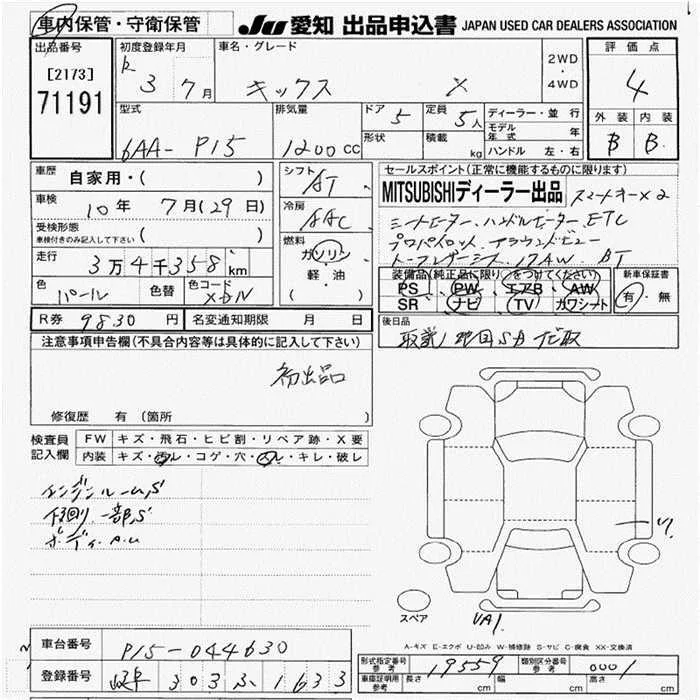 車内保管・守衛保管
JU 愛知 出品申込書 JAPAN USED CAR DEALERS ASSOCIATION
出品番号
[2173]
71191
初度登録年月
R 3 7月
車名・グレード
キックス X
2WD・4WD
評価点
4
外装 内装
B B
型式
6AA-P15
排気量
1200 CC
ドア 5
定員 5人
形状
積載 kg
ディーラー・並行
モデル年式 年
ハンドル 左・右
車歴
自家用・( )
車検
10年 7月(29日)
受検形態
車検付きのみ記入して下さい ( )
走行
3万4千358 km
色
パール
色替
色コード
XDN
シフト
AT
冷房
AAC
燃料
ガソリン
軽・油
( )
セールスポイント(正常に機能するものに限ります)
MITSUBISHIディーラー出品 スマートキー×2
シートヒーター、ハンドルヒーター、ETC
プロパイロット アラウンドビュー
17AW BT
装備品(純正品に限り)をつけてください)
PS PW エアB AW
SR ナビ TV カワシート
新車保証書
有・無
R券 9830 円
名変通知期限 月 日
後日品
取説 地図SD
注意事項申告欄(不具合内容等は具体的に記入して下さい)
初出品
修復歴 有(箇所 )
検査員記入欄
FW キズ・飛石・ヒビ割・リペア跡・X要
内装 キズ・汚レ・コゲ・穴・スレ・キレ・破レ
エンジンルームS
下回り一部S
ボディA.U
スペア
VA1
A-キズ E-エクボ U-凹み W-補修跡 S-サビ C-腐食 XX-交換済
車台番号
P15-044630
登録番号
岐阜 303 1633
型式指定番号 参考
19559
類別区分番号 参考
0001
車庫証明用 参考
長さ cm 幅 cm 高さ cm